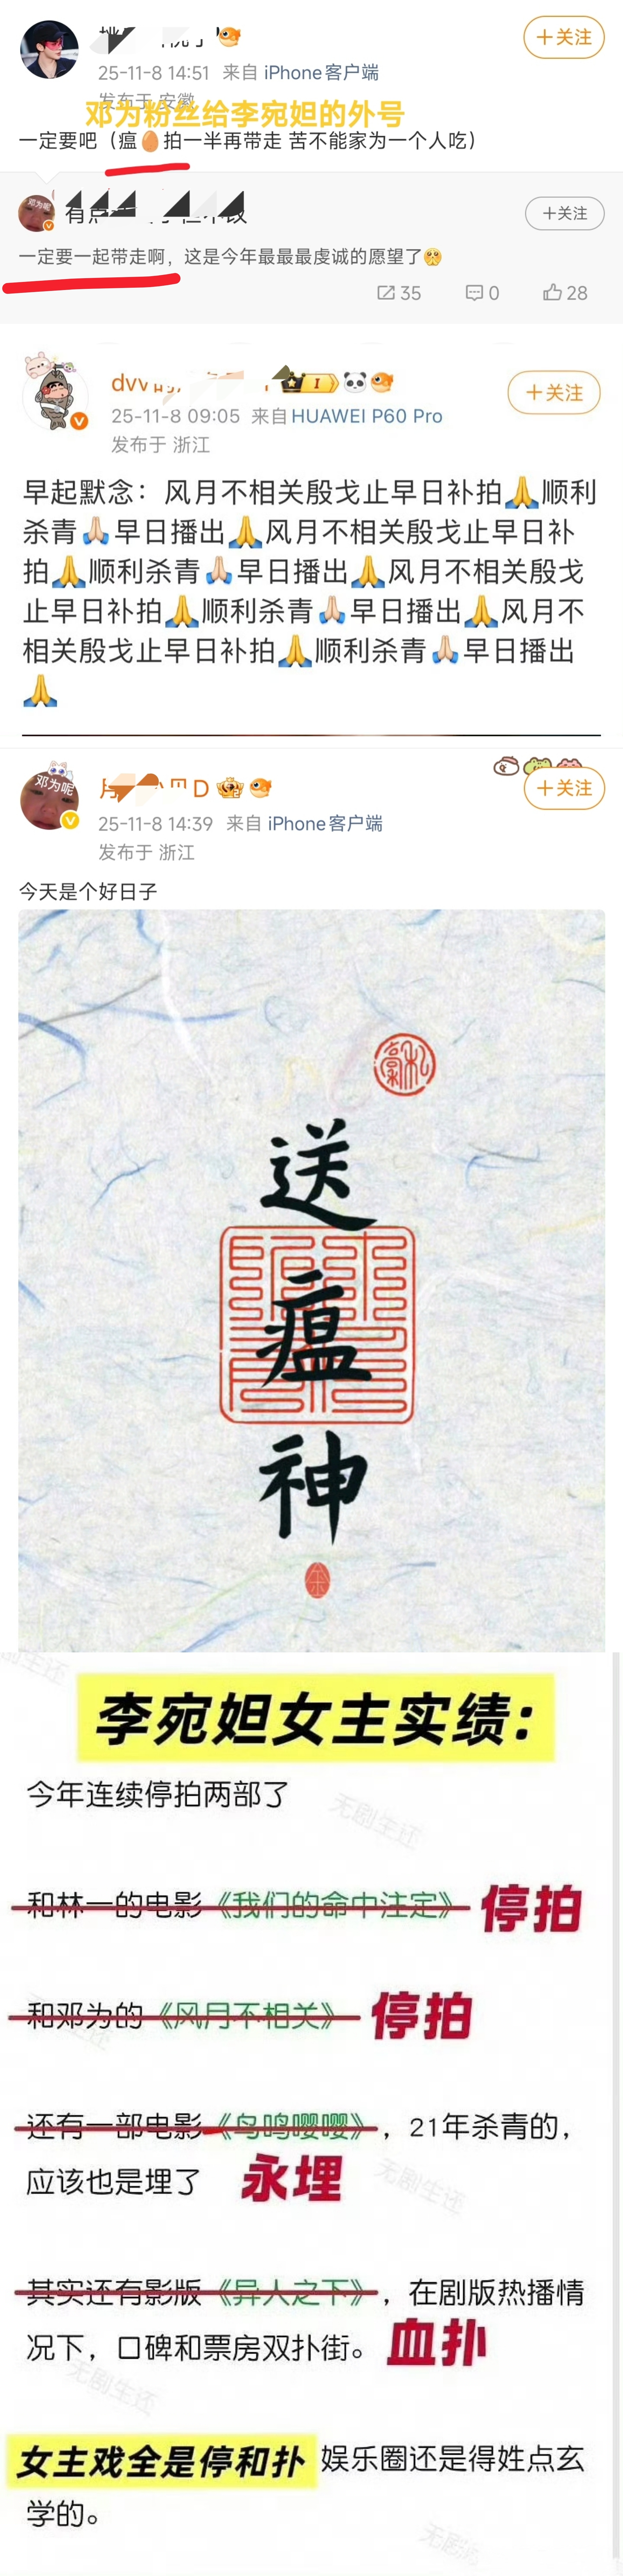 +关注
25-11-8 14:51 来自 iPhone客户端
发布于 安徽
邓为粉丝给李宛妲的外号
一定要吧（瘟🥚拍一半再带走 苦不能家为一个人吃）
邓为呢
+关注
一定要一起带走啊，这是今年最最最虔诚的愿望了🥺
35 0 28
dvv
I
+关注
25-11-8 09:05 来自 HUAWEI P60 Pro
发布于 浙江
早起默念：风月不相关殷戈止早日补拍🙏顺利
杀青🙏🏻早日播出🙏风月不相关殷戈止早日补
拍🙏顺利杀青🙏🏻早日播出🙏风月不相关殷戈
止早日补拍🙏顺利杀青🙏🏻早日播出🙏风月不
相关殷戈止早日补拍🙏顺利杀青🙏🏻早日播出
🙏
邓为呢
D
+关注
25-11-8 14:39 来自 iPhone客户端
发布于 浙江
今天是个好日子
送
瘟
神
李宛妲女主实绩：
今年连续停拍两部了
无剧生还
和林一的电影《我们的命中注定》 停拍
和邓为的《风月不相关》 停拍
还有一部电影《鸟鸣嘤嘤》，21年杀青的，
应该也是埋了 永埋
无剧生还
其实还有影版《异人之下》，在剧版热播情
况下，口碑和票房双扑街。 血扑
无剧生还
女主戏全是停和扑 娱乐圈还是得姓点玄
学的。